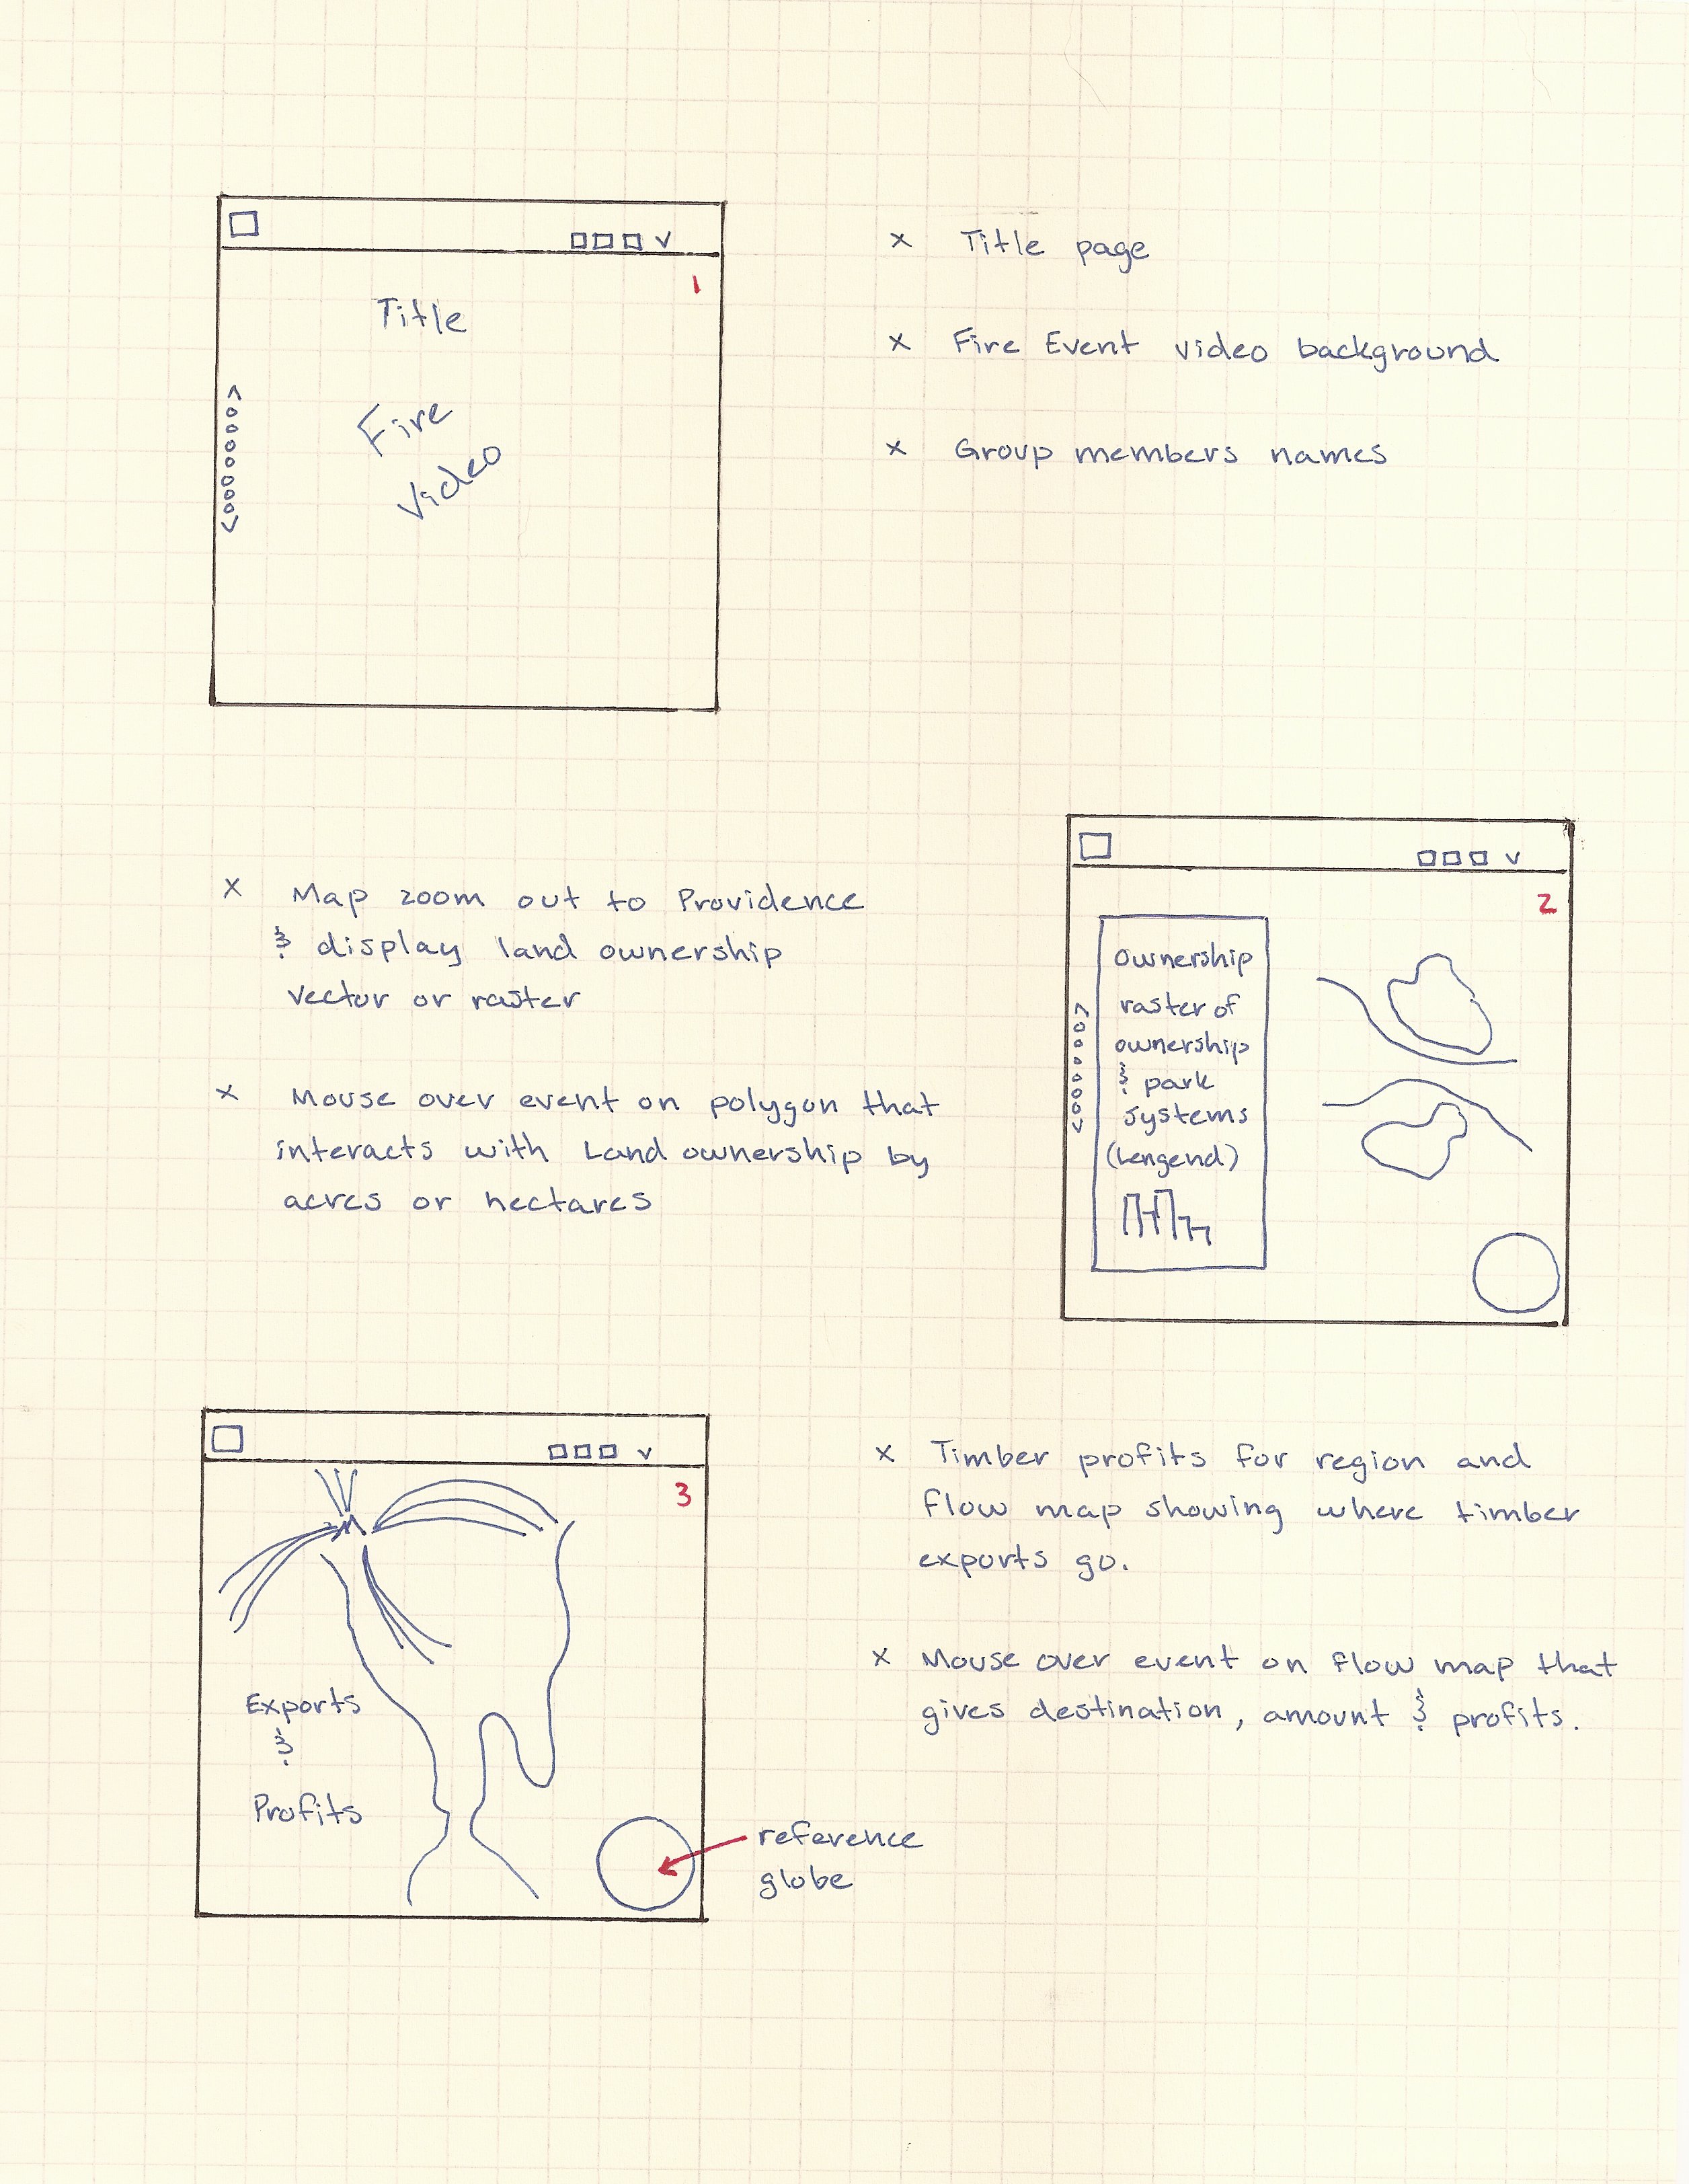 1
Title
Fire
Video
x Title page
x Fire Event video background
x Group members names
x Map zoom out to Providence
& display land ownership
vector or raster
x Mouse over event on polygon that
interacts with Land ownership by
acres or hectares
2
Ownership
raster of
ownership
& park
systems
(Lengend)
3
Exports
&
Profits
reference
globe
x Timber profits for region and
flow map showing where timber
exports go.
x Mouse over event on flow map that
gives destination, amount & profits.